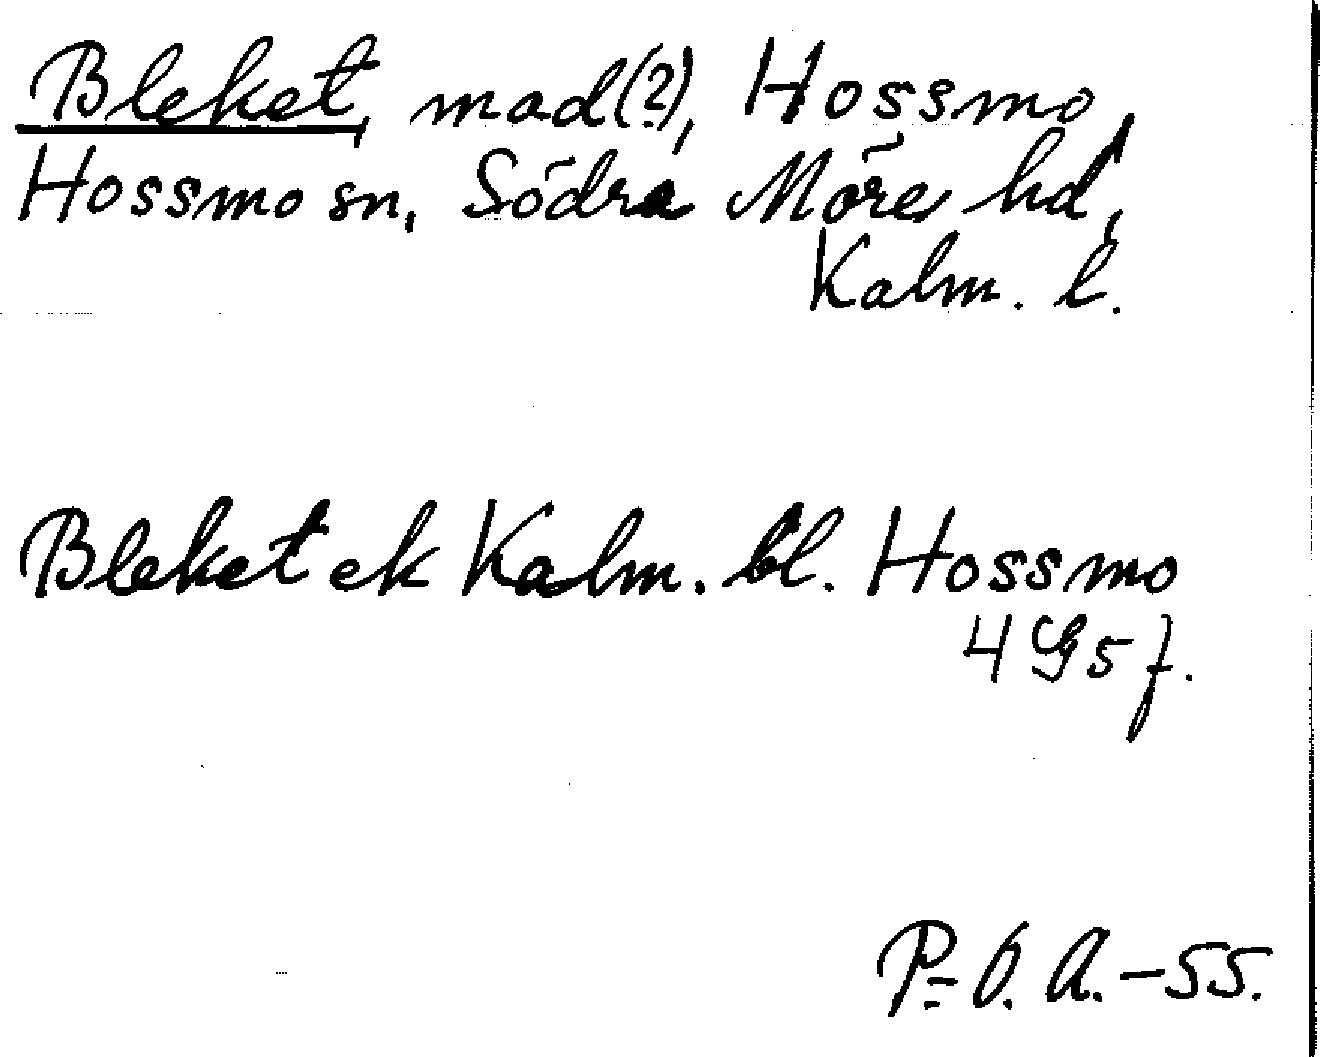 Bleket, mad(?), Hossmo,
Hossmo sn, Södra Möre hd,
Kalm. l.
Bleket ek Kalm. bl. Hossmo
4 G 5 f.
P.-O. A. -55.